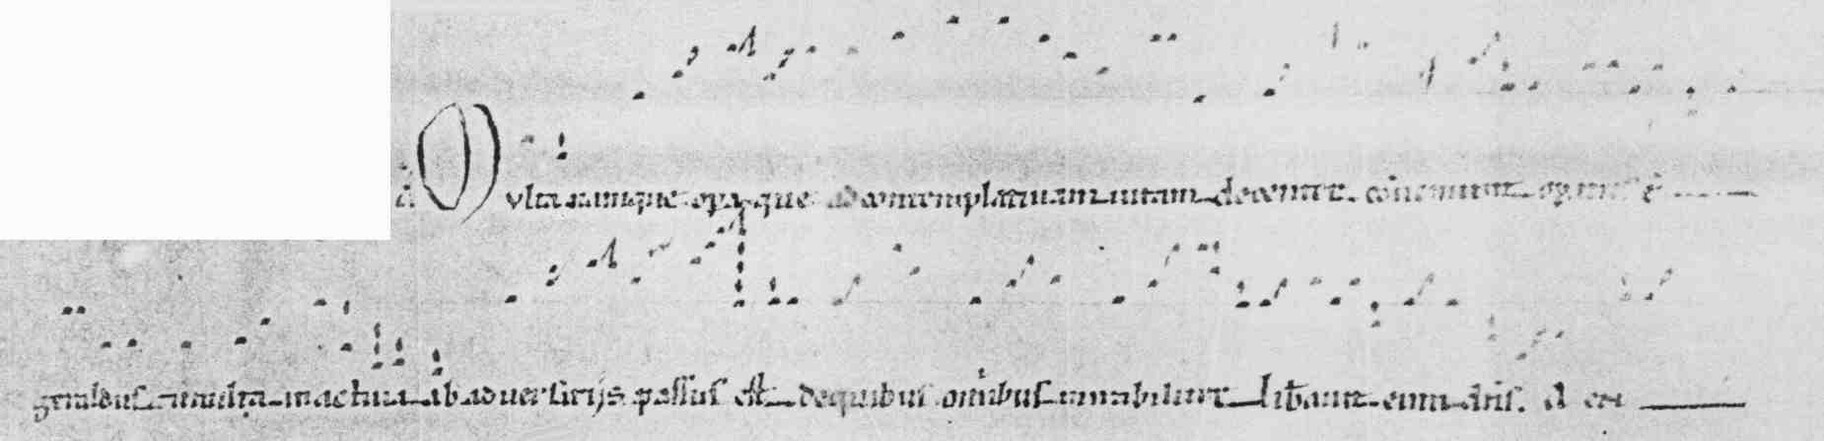 A Multa namque opa que ad contemplatiuam uitam decenter coueniunt
multa in actiua ab aduersarijs passus est de quibus omibus mirabiliter libauit eum dns. A